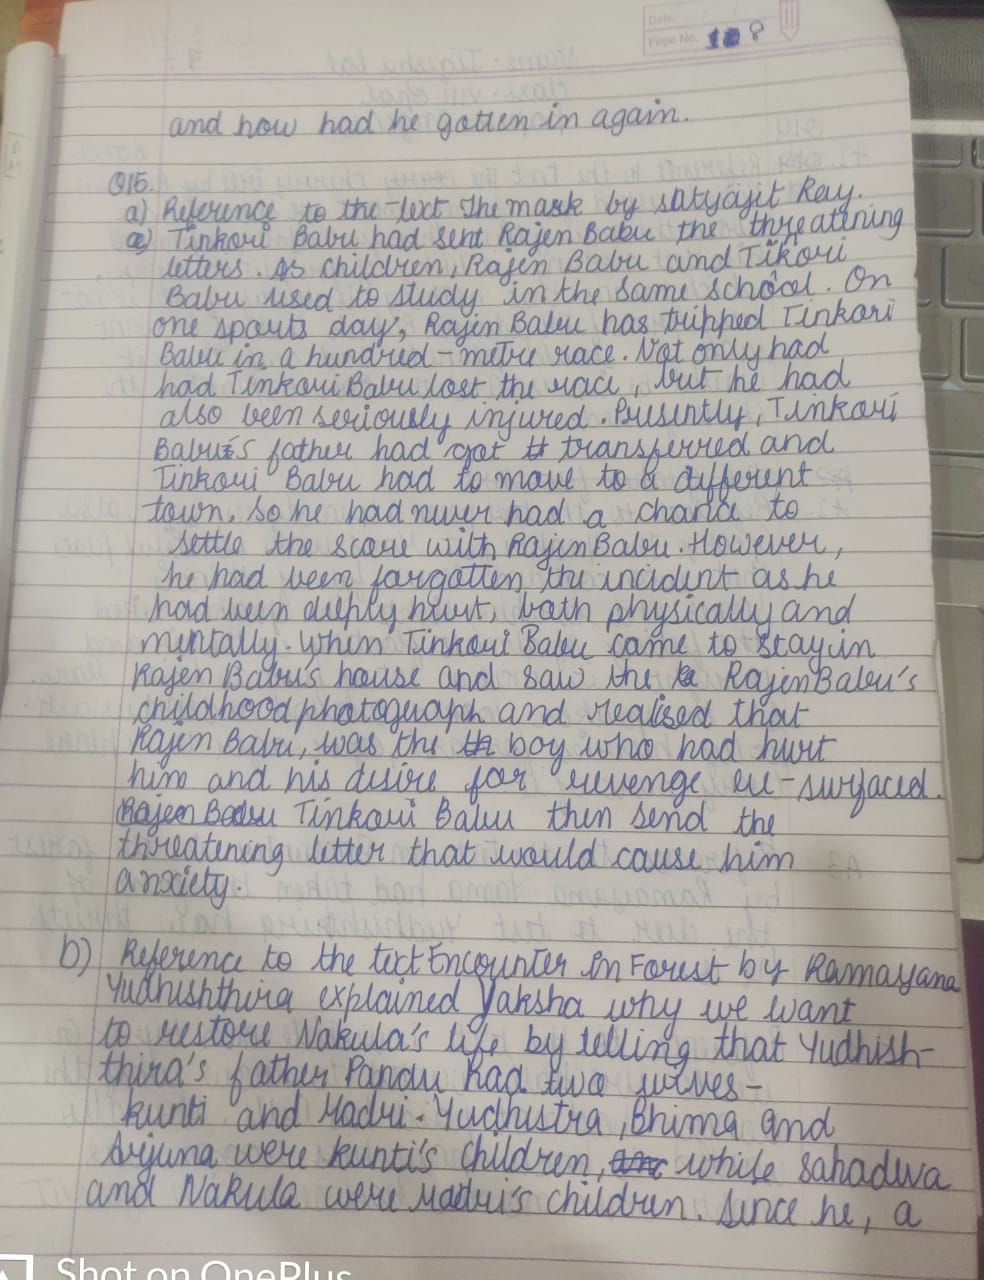 Date: / /
Page No. 8
and how had he gotten in again.
Q15.
a) Reference to the text The mask by satyajit Ray.
a) Tinkori Babu had sent Rajen Babu the threatining
letters. As children, Rajen Babu and Tikori
Babu used to study in the same school. On
one sports day, Rajen Babu has tripped Tinkori
Babu in a hundred-metre race. Not only had
had Tinkori Babu lost the race, but he had
also been seriously injured. Presently, Tinkori
Babu's father had got transferred and
Tinkori Babu had to move to a different
town, so he had never had a chance to
settle the score with Rajen Babu. However,
he had been forgotten the incident as he
had been deeply hurt, both physically and
mentally. When Tinkori Babu came to stay in
Rajen Babu's house and saw the Rajen Babu's
childhood photograph and realised that
Rajen Babu, was the boy who had hurt
him and his desire for revenge re-surfaced.
Tinkori Babu then send the
threatening letter that would cause him
anxiety.
b) Reference to the text Encounter in Forest by Ramayana
Yudhishthira explained Yaksha why we want
to restore Nakula's life by telling that Yudhish-
thira's father Pandu had two wives-
kunti and Madri. Yudhustra, Bhima and
Arjuna were kunti's children, while sahadva
and Nakula were Madri's children. Since he, a
Shot on OnePlus